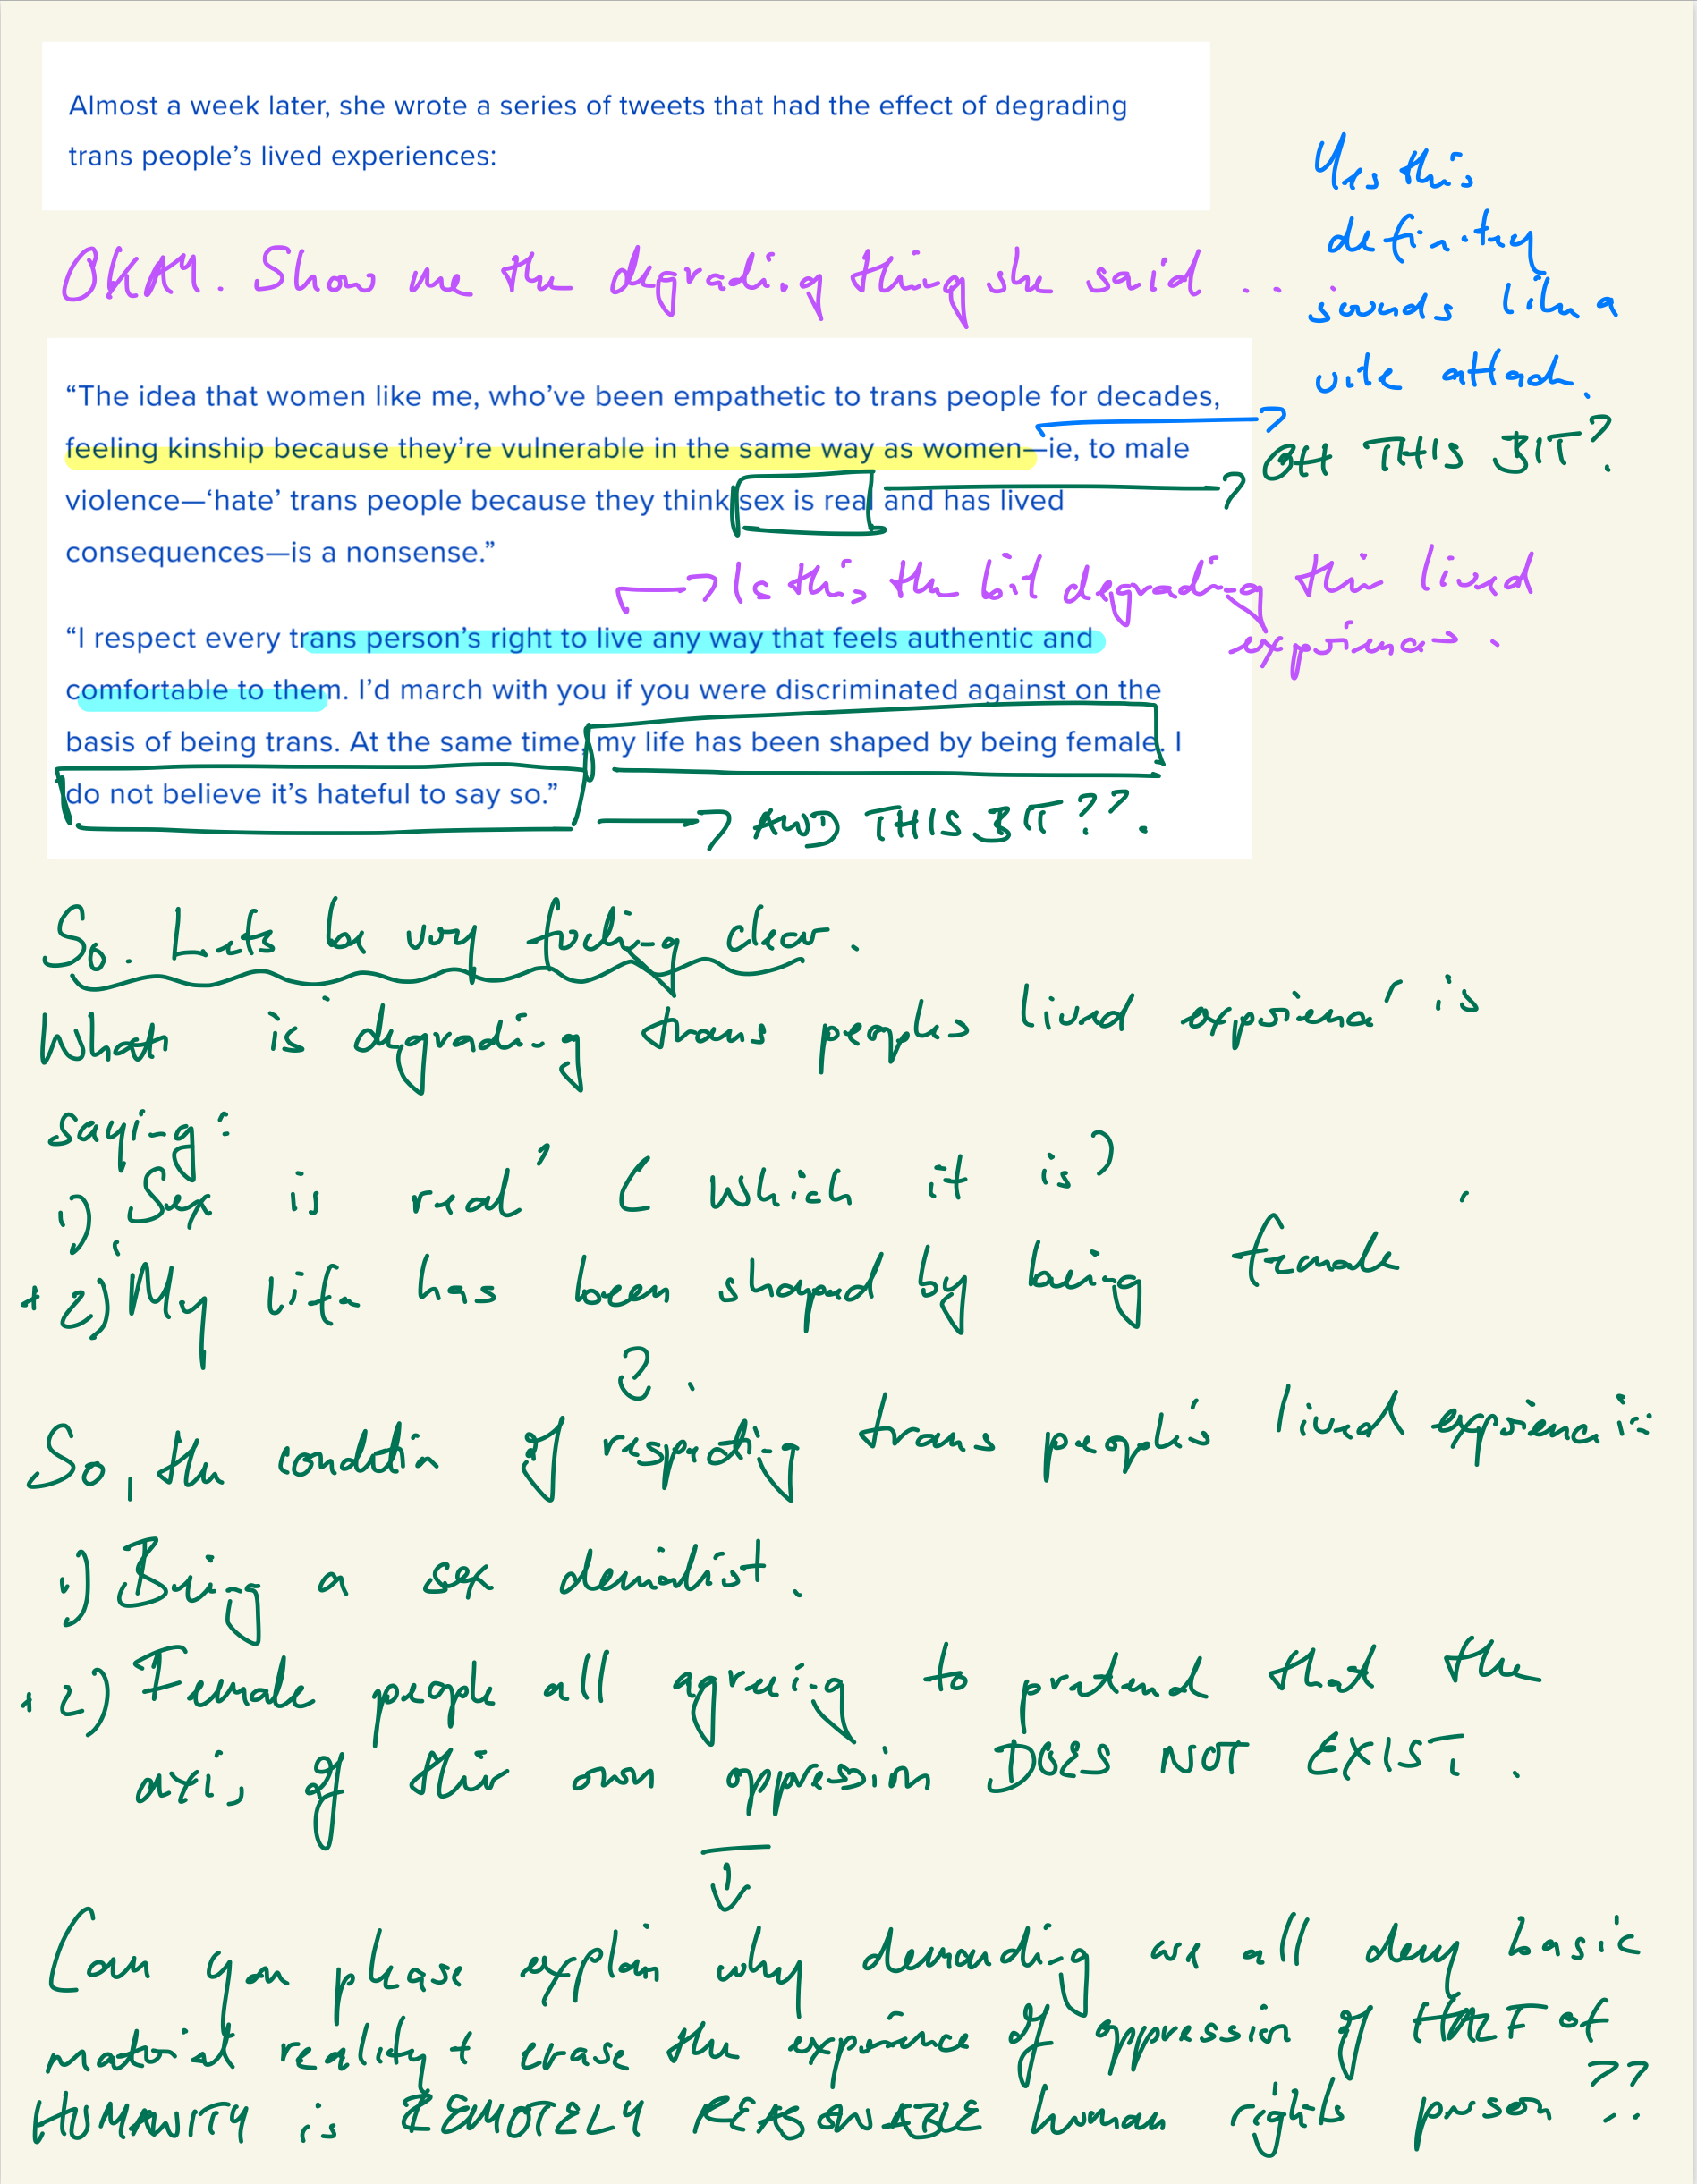 Almost a week later, she wrote a series of tweets that had the effect of degrading
trans people's lived experiences:
Yes this
definitey
sounds like a
vile attack.
OKAY. Show me the degrading thing she said ..
“The idea that women like me, who've been empathetic to trans people for decades,
feeling kinship because they're vulnerable in the same way as women—ie, to male
OH THIS BIT?
violence—‘hate’ trans people because they think sex is real and has lived
consequences—is a nonsense.”
Is this the bit degrading their lived
experiences.
“I respect every trans person's right to live any way that feels authentic and
comfortable to them. I'd march with you if you were discriminated against on the
basis of being trans. At the same time, my life has been shaped by being female. I
do not believe it's hateful to say so.”
AND THIS BIT??.
So. Lets be very fucking clear.
What is degrading trans peoples lived experience' is
saying:
1) 'Sex is real' (which it is)
+ 2) 'My life has been shaped by being female'
?.
So, the condition of respecting trans people's lived experience is:
1) Being a sex denialist.
+ 2) Female people all agreeing to pretend that the
axis of their own oppression DOES NOT EXIST.
Can you please explain why demanding we all deny basic
material reality + erase the experience of oppression of HALF OF
HUMANITY is REMOTELY REASONABLE human rights person??